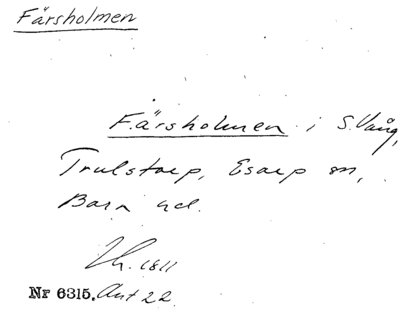 Färsholmen
Färsholmen i S. Vång,
Trulstorp, Esarp sn,
Bara hd.
Lh. 1811
Nr 6315. Ant 22.